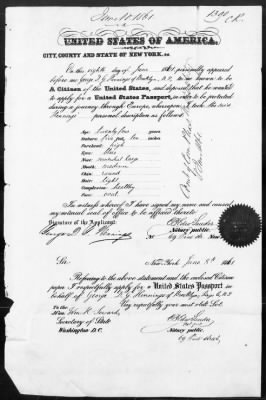 June 10 1861
1390
UNITED STATES OF AMERICA,
CITY, COUNTY AND STATE OF NEW YORK, ss.
On this eighth day of June 1861, personally appeared
before me George D. G. Hennings of Brooklyn, N.Y., to me known to be
A Citizen of the United States, and deposed that he wanted
to apply for a United States Passport, in order to be protected
during a journey through Europe, whereupon I took the said
Hennings' personal description as follows:
Age: Twenty two years
Stature: five feet ten inches
Forehead: high
Eyes: blue
Nose:
Mouth: medium
Chin: round
Hair: light
Complexion: healthy
Face: oval
In witness whereof I have signed my name and caused my
notarial seal of office to be affixed thereto
Signature of the Applicant:
George D. G. Hennings
Notary public.
Sir:
New-York June 8th 1861
Referring to the above statement and the enclosed Citizen
Paper I respectfully apply for a United States Passport in
behalf of George D. G. Hennings of Brooklyn,
To Very respectfully your most obdt. Svt.
Hon. W. H. Seward,
Secretary of State
Washington D.C.
Notary public